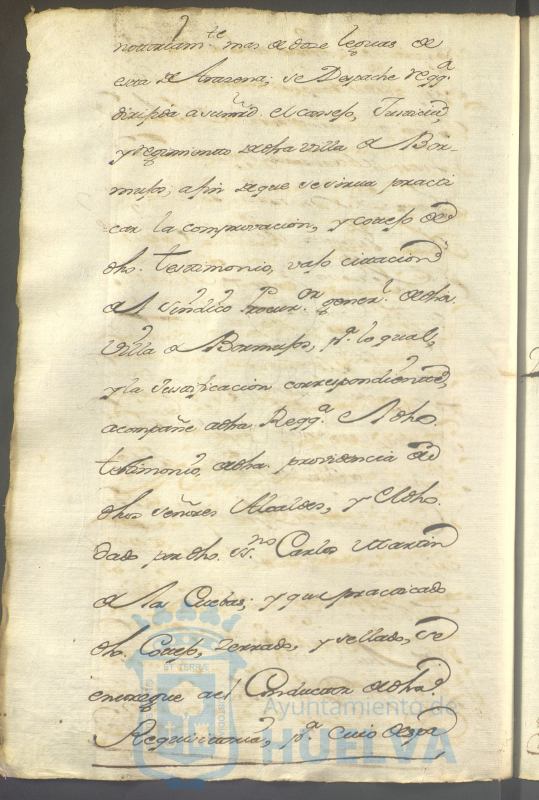 notoriam.te mas de doze leguas de
esta de Arazena; se Despache reqq.a
dirijida a su mrd. el consejo, Justicia,
y regimiento de dha villa de Bor-
mujos, a fin de que se sirva practi
car la comprovacion, y cotejo de
dho. testimonio, vajo citacion
del Sindico Procur.or gener.l de dha
Villa de Bormujos, p.a lo qual,
y la justificacion correspondiente,
acompañe a dha Reqq.a el dho
testimonio de dha. providencia de
dhos señores Alcaldes, y el dho.
dado por dho. Ss.no Carlos Martin
de las Cuebas; y que practicado
dho. Cotejo, zerrado, y sellado, se
entregue al Conductor de dha
Requisitoria, p.a cuio despa
Ayuntamiento de
HUELVA